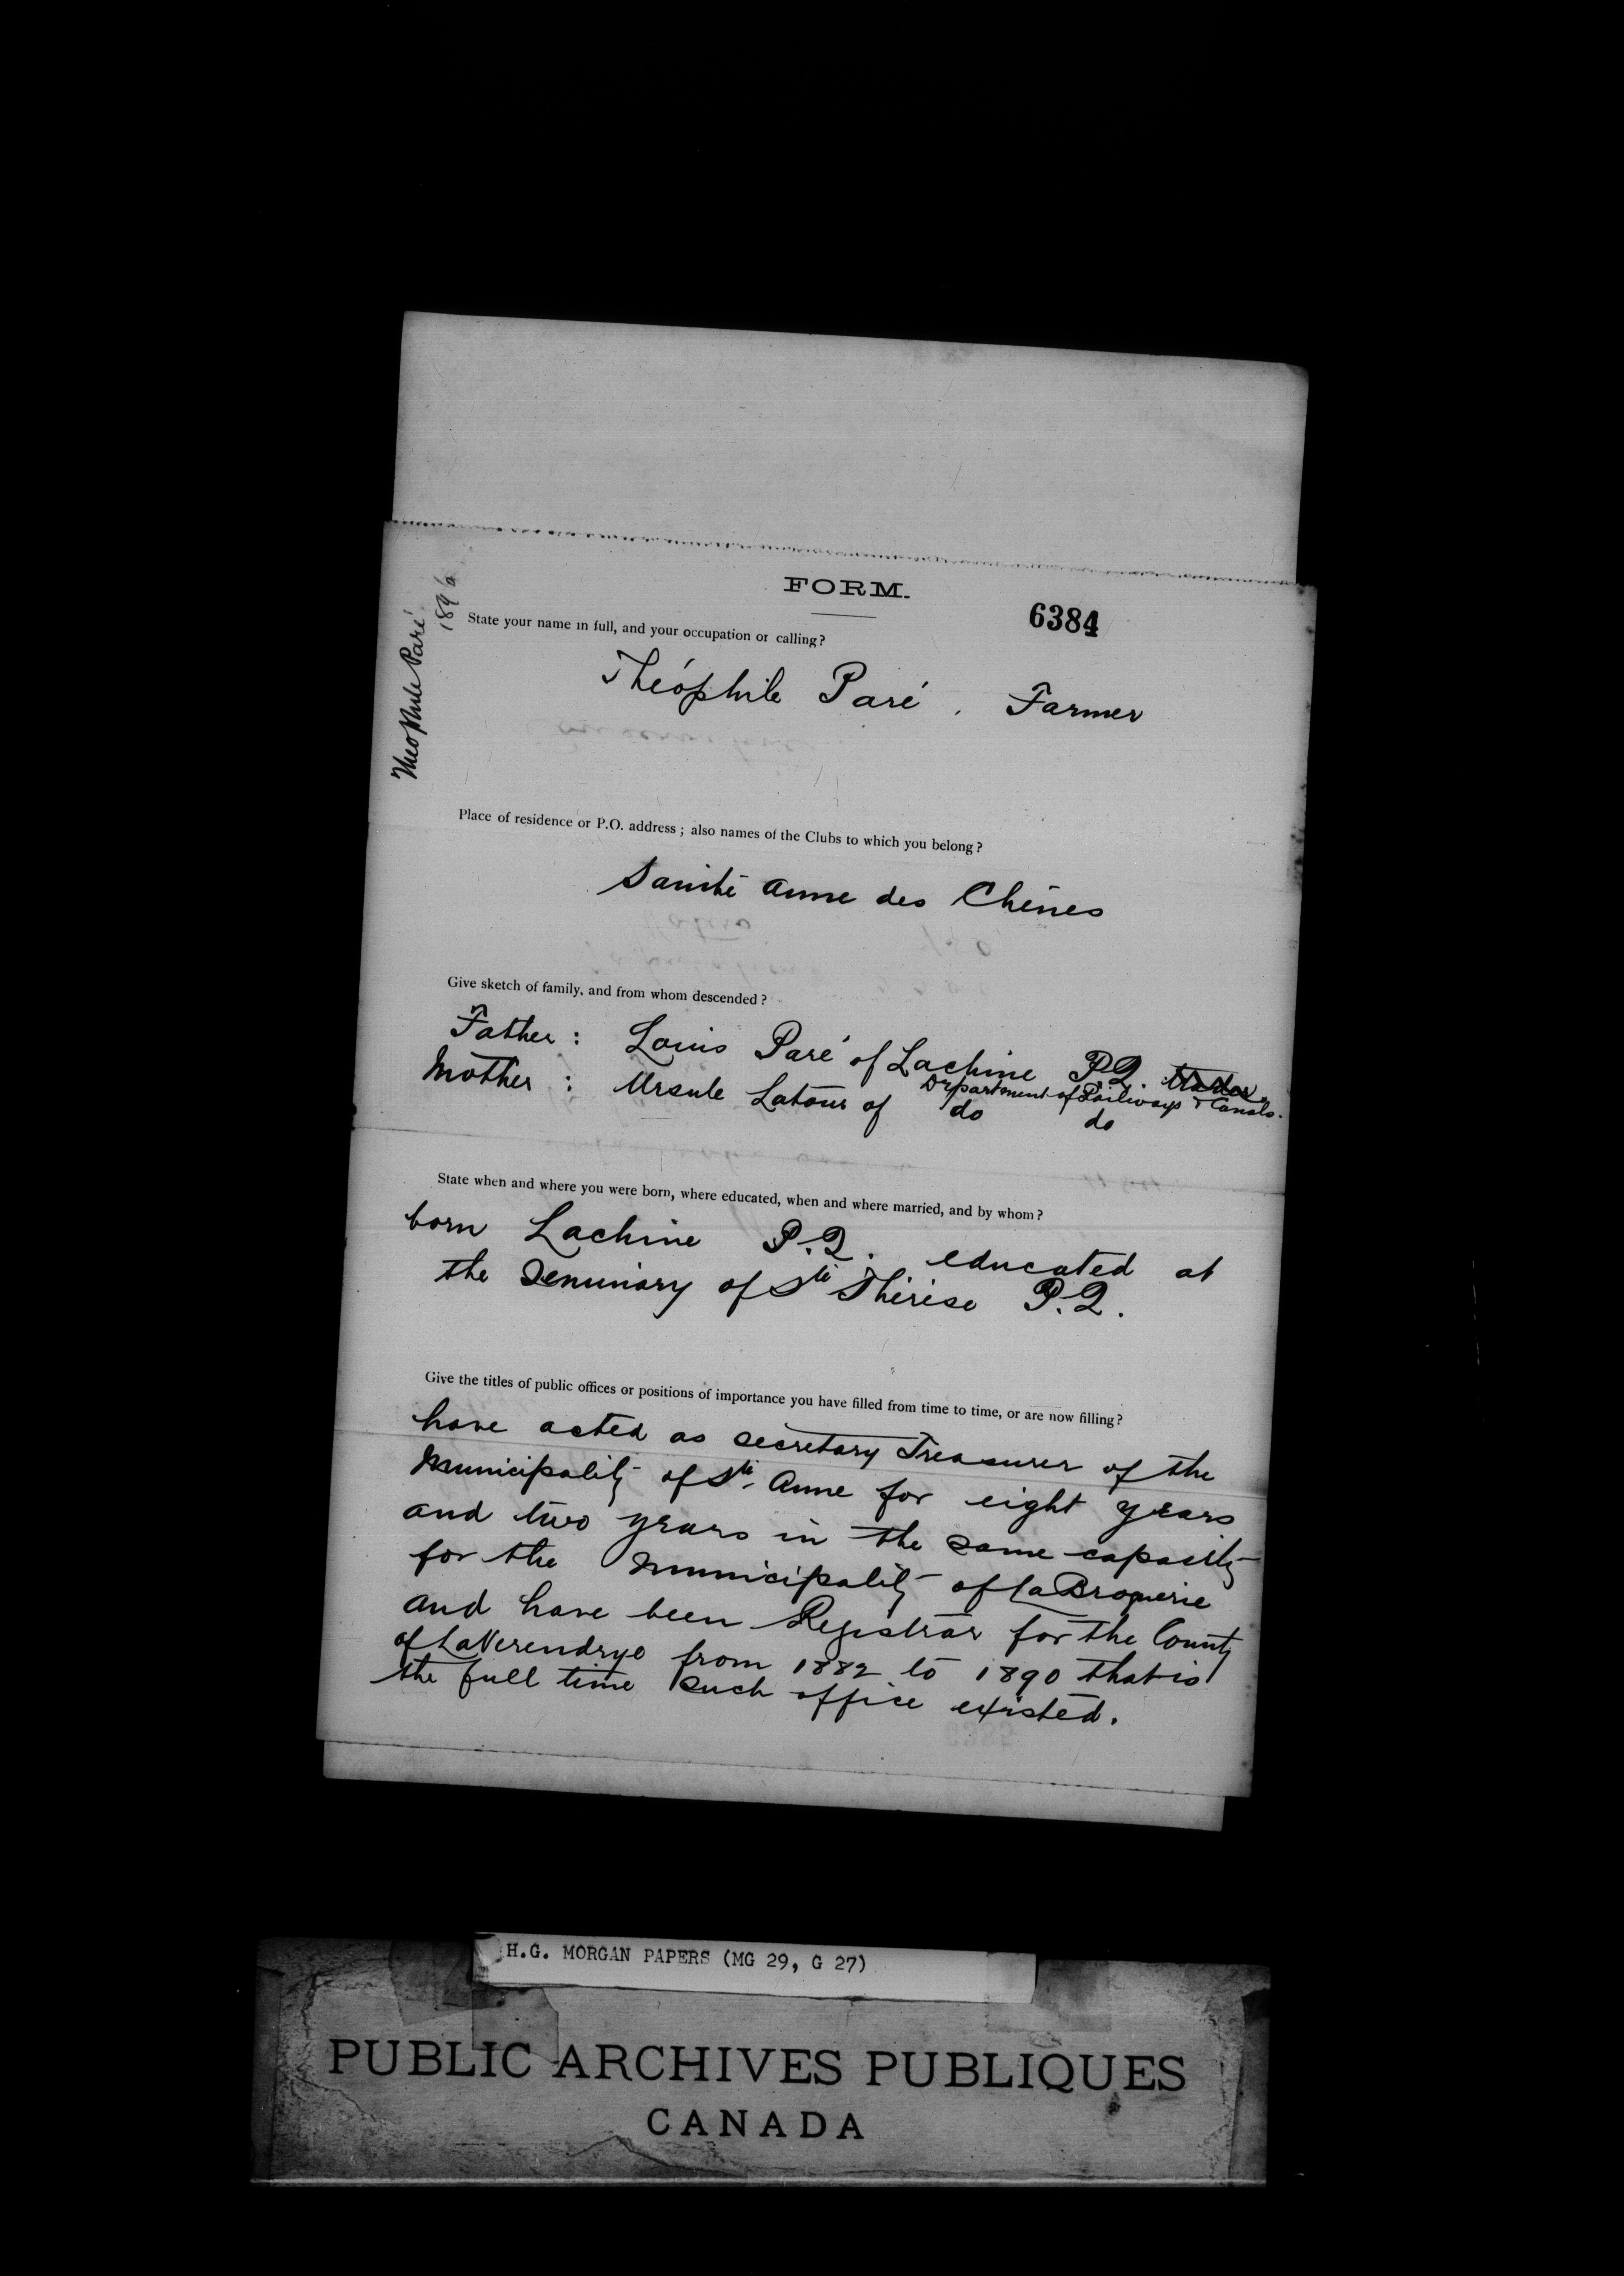 FORM.
6384
Theophile Paré
State your name in full, and your occupation or calling?
Théophile Paré. Farmer
Place of residence or P.O. address; also names of the Clubs to which you belong?
Sainte Anne des Chênes
Give sketch of family, and from whom descended?
Father: Louis Paré of Lachine P.Q.
Department of Railways & Canals.
Mother: Ursule Latour of do do
State when and where you were born, where educated, when and where married, and by whom?
born Lachine P.Q. educated at
the Seminary of Ste Thérèse P.Q.
Give the titles of public offices or positions of importance you have filled from time to time, or are now filling?
have acted as secretary Treasurer of the
Municipality of Ste. Anne for eight years
and two years in the same capacity
for the Municipality of La Broquerie
and have been Registrar for the County
of LaVerendrye from 1882 to 1890 that is
the full time such office existed.
H.G. MORGAN PAPERS (MG 29, G 27)
PUBLIC ARCHIVES PUBLIQUES
CANADA